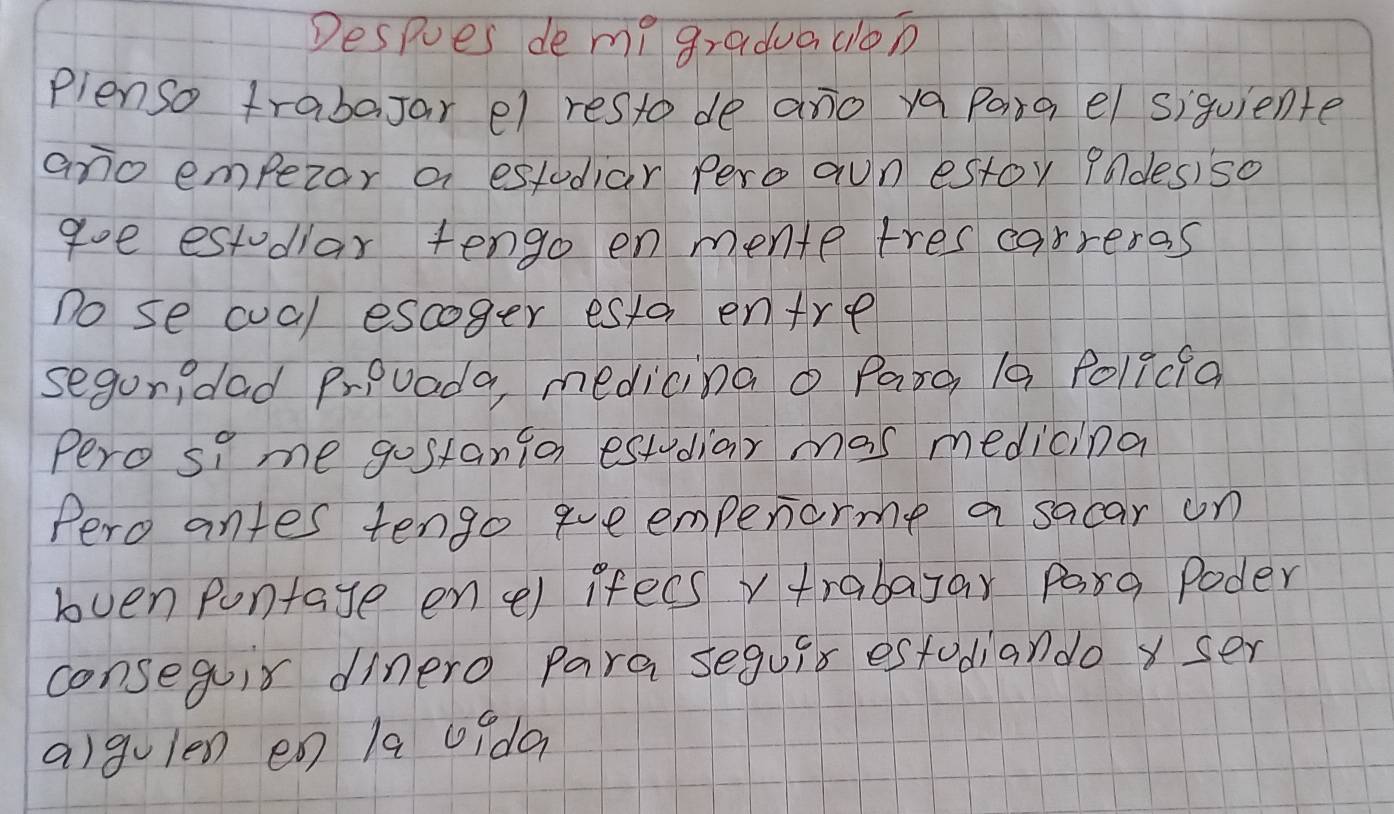 Despues de mi graduacion
Pienso trabajar el resto de año ya para el siguiente
año empezar a estudiar pero aun estoy indesiso
que estudiar tengo en mente tres carreras
no se cual escoger esta entre
seguridad privada, medicina o para la policia
pero si me gustaria estudiar mas medicina
pero antes tengo que empeñarme a sacar un
buen puntaje en el ifecs y trabajar para poder
conseguir dinero para seguir estudiando y ser
alguien en la vida